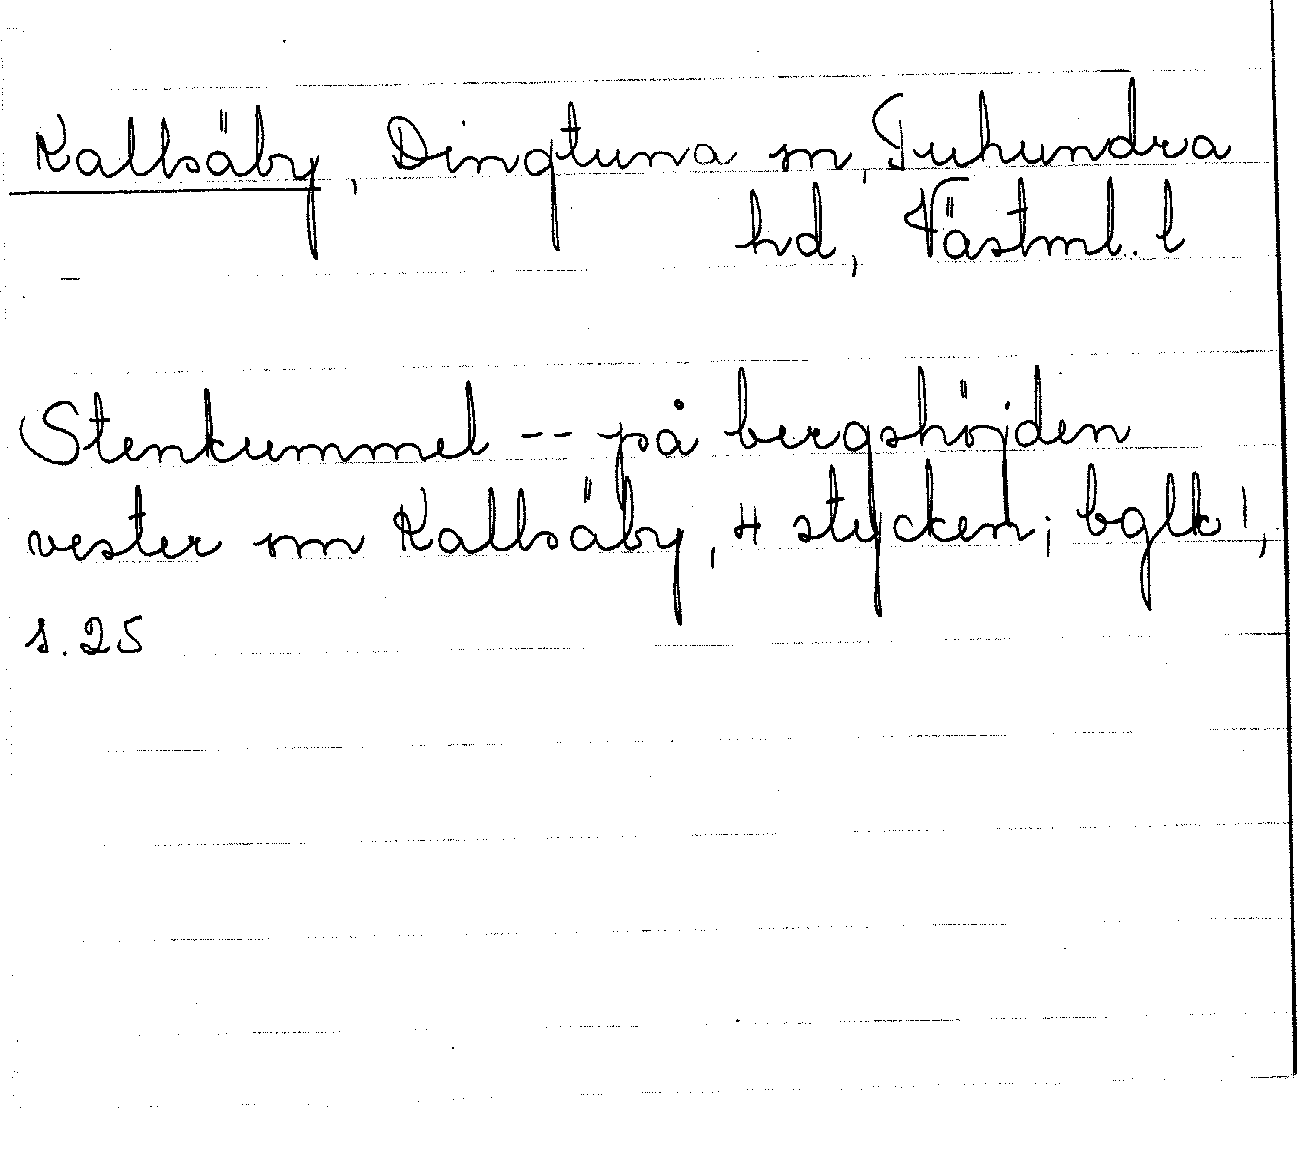 Kallsäby, Dingtuna sn, Tuhundra
hd, Västml. l
Stenkummel -- på bergshöjden
vester om Kallsäby, 4 stycken; bglk 1,
s. 25